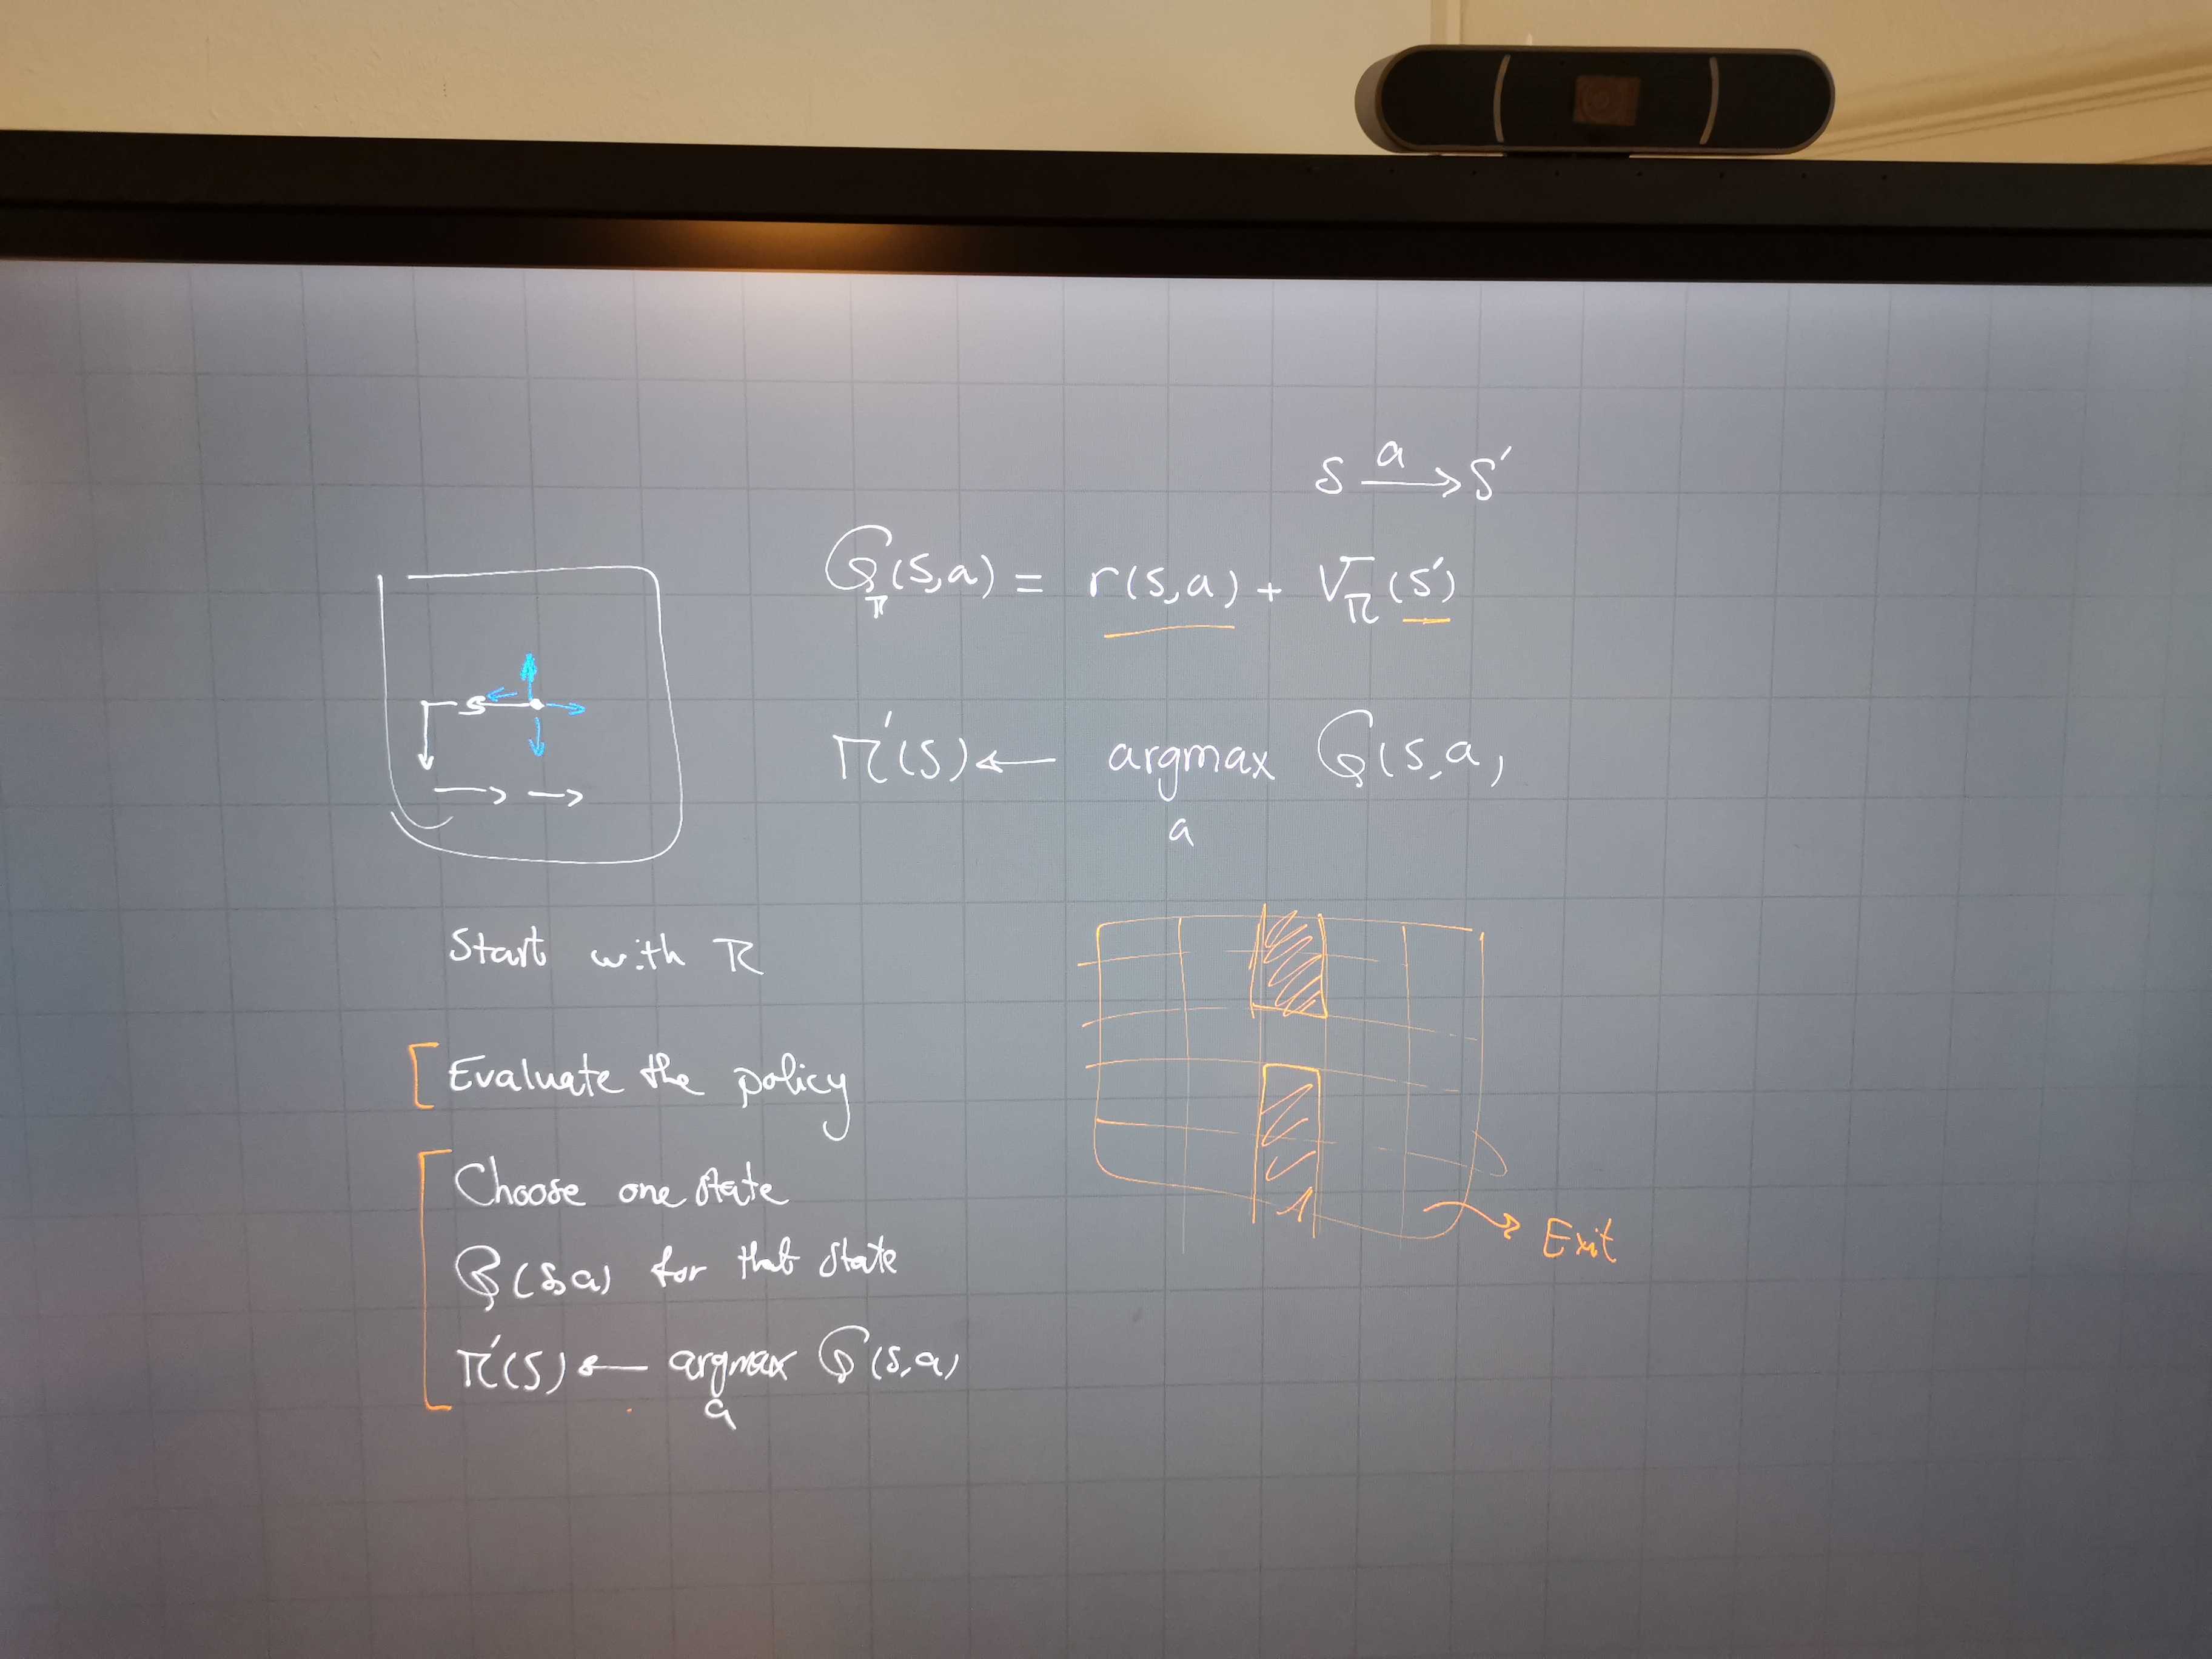 s a → s'
Q_π(s,a) = r(s,a) + V_π(s')
π'(s) ← argmax Q(s,a,
a
s
Start with π
Evaluate the policy
Choose one state
Q(s,a) for that state
π'(s) ← argmax Q(s,a)
a
Exit